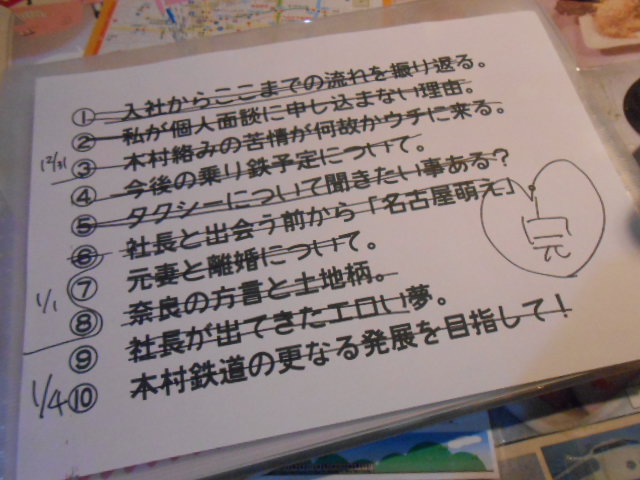 ① 入社からここまでの流れを振り返る。
② 私が個人面談に申し込まない理由。
12/31
③ 木村絡みの苦情が何故かウチに来る。
④ 今後の乗り鉄予定について。
⑤ タクシーについて聞きたい事ある?
⑥ 社長と出会う前から「名古屋萌え」
⑦ 元妻と離婚について。
1/1
⑧ 奈良の方言と土地柄。
⑨ 社長が出てきたエロい夢。
1/4
⑩ 本村鉄道の更なる発展を目指して!